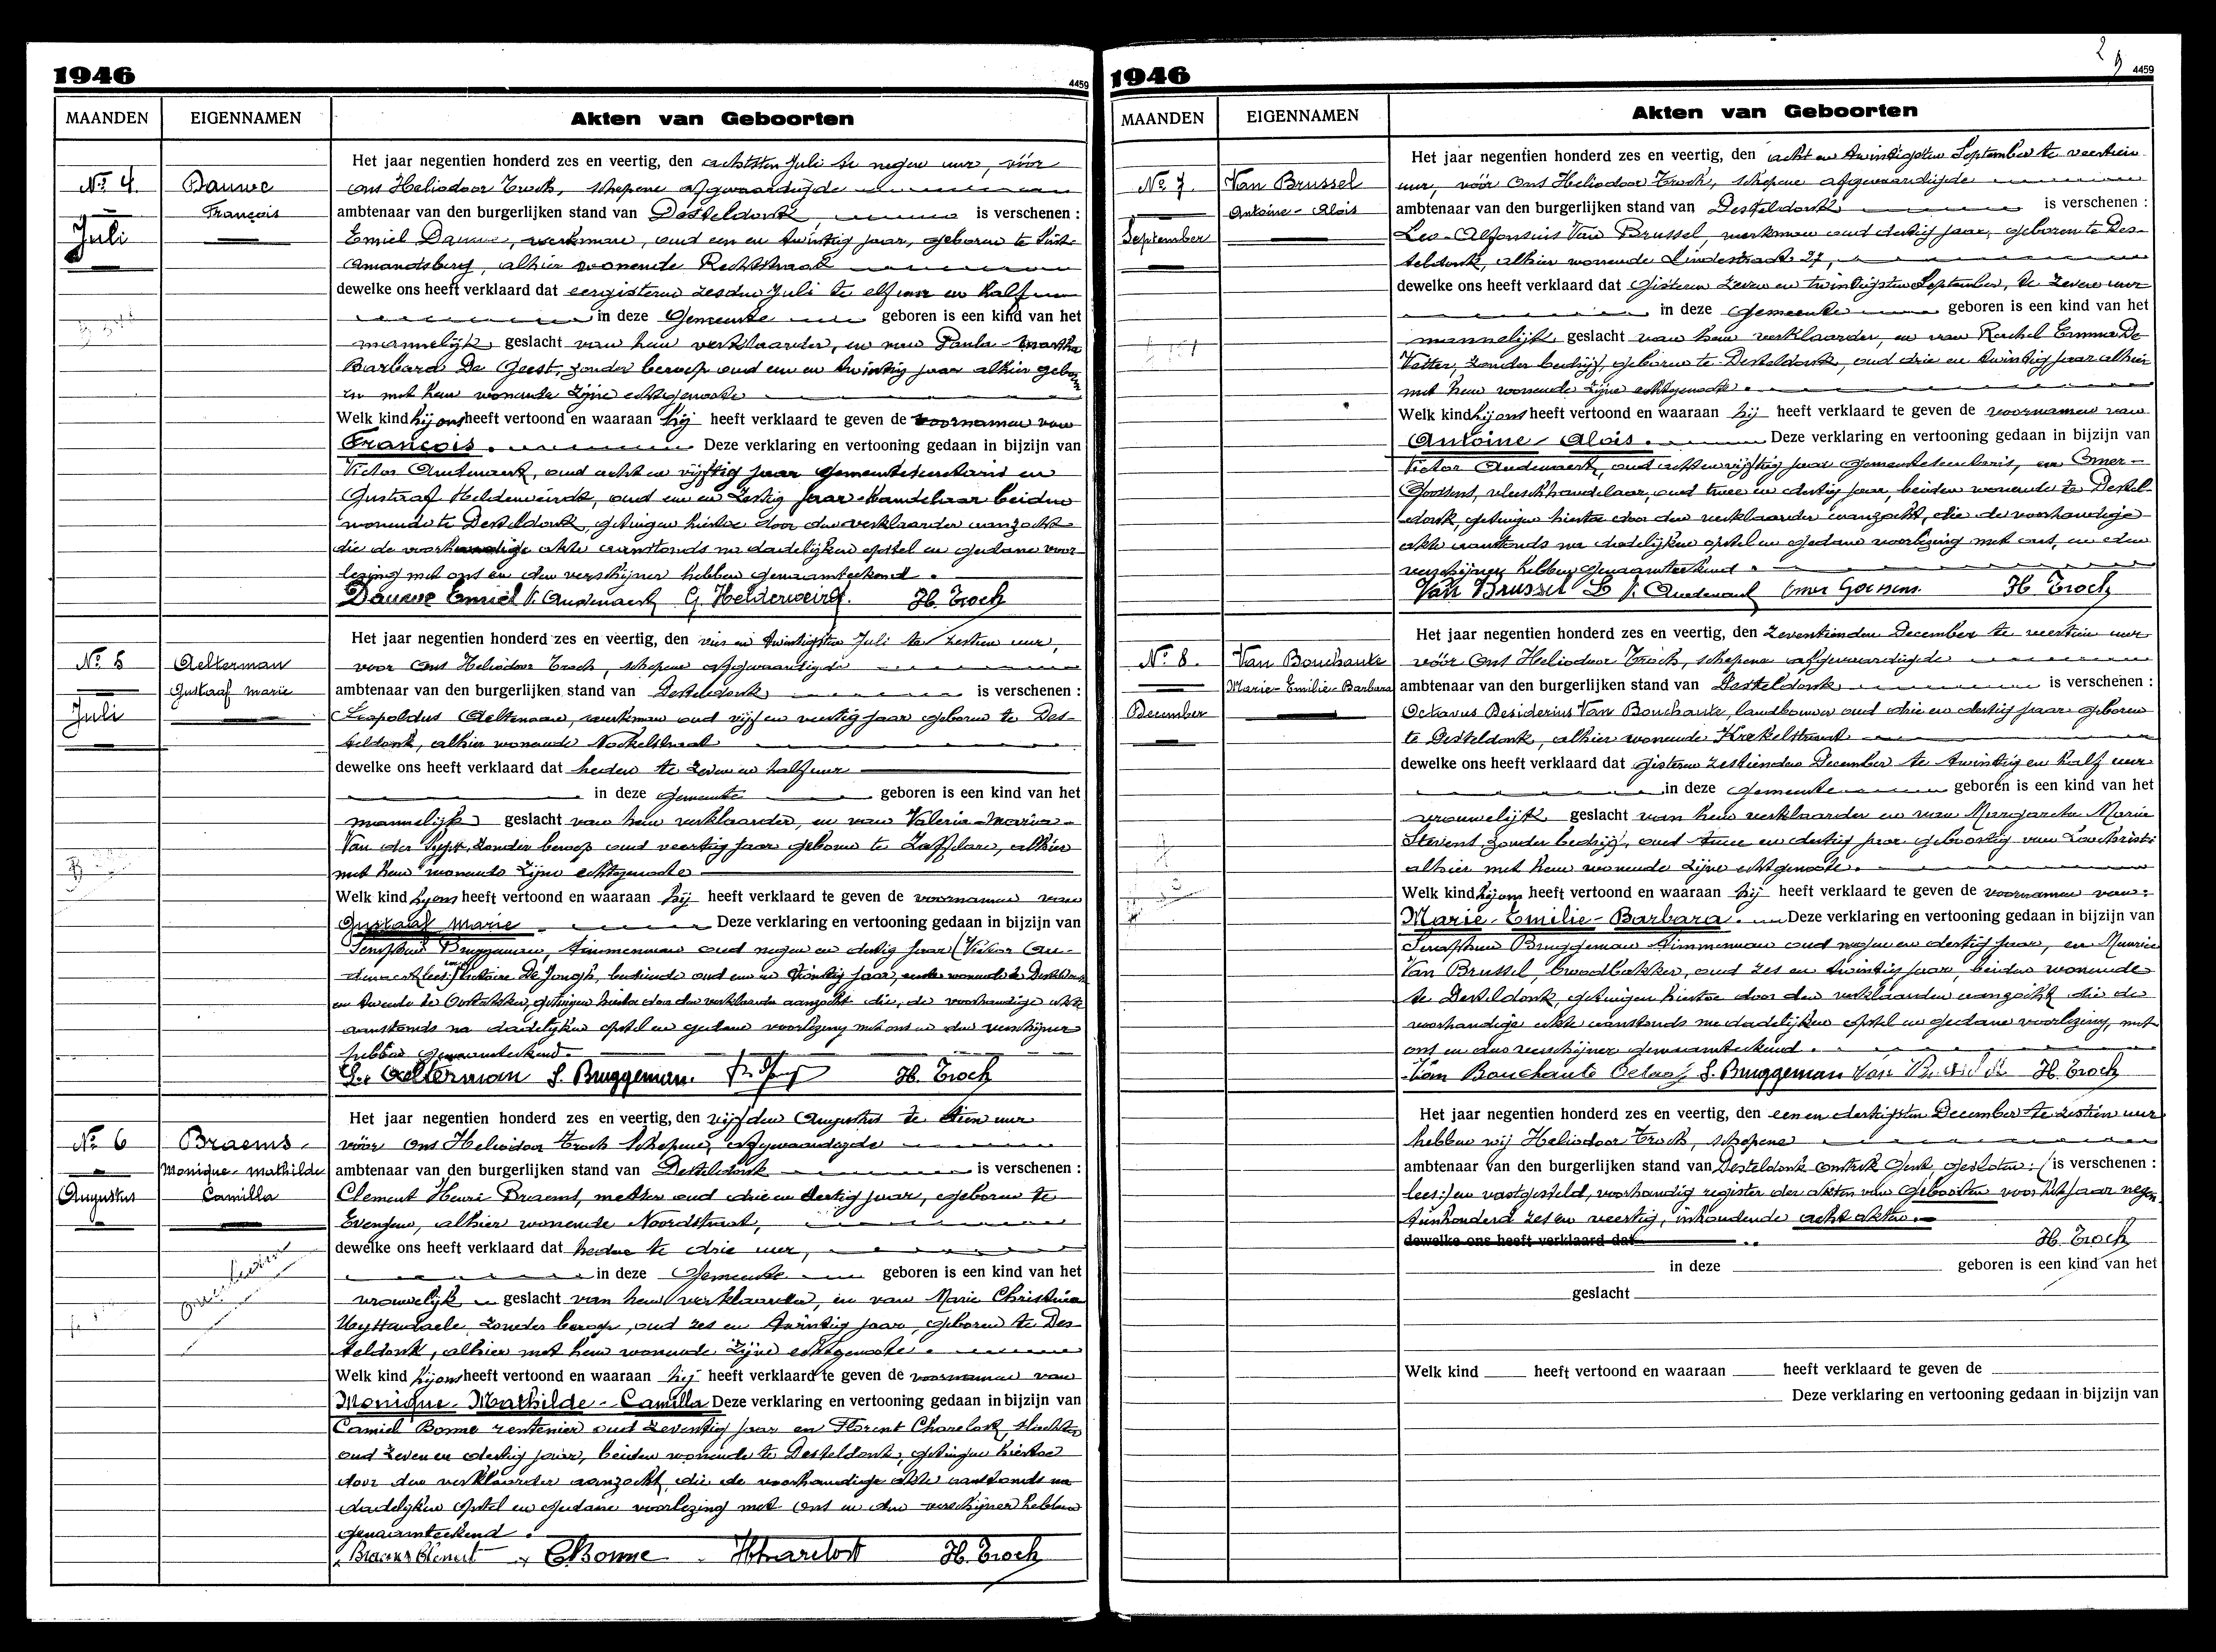 1946
4459
MAANDEN EIGENNAMEN Akten van Geboorten
Het jaar negentien honderd zes en veertig, den achtsten Juli te negen uur, vóór
No 4. Dauwe ons Heliodoor Troch, schepene afgevaardigde
François ambtenaar van den burgerlijken stand van Desteldonk is verschenen :
Juli Emiel Dauwe, werkman, oud een en twintig jaar, geboren te Sint-
Amandsberg, alhier wonende Rechtstraat
dewelke ons heeft verklaard dat eergisteren zesden Juli te elf uur en half
in deze Gemeente geboren is een kind van het
mannelijk geslacht van hem verklaarder, en van Paula-Martha
Barbara De Geest, zonder beroep oud een en twintig jaar alhier geboren
en met hem wonende zijne echtgenoote
Welk kind hij ons heeft vertoond en waaraan hij heeft verklaard te geven de voornamen van
François. Deze verklaring en vertooning gedaan in bijzijn van
Victor Audenaert, oud acht en vijftig jaar gemeentesecretaris en
Gustaaf Helderweirdt, oud een en zestig jaar handelaar beiden
wonende te Desteldonk, getuigen hiertoe door den verklaarder aanzocht
die de voorhandige akte aanstonds na dadelijken opstel en gedane voor-
lezing met ons en den verschijner hebben genaamteekend.
Dauwe Emiel V. Audenaert G. Helderweirdt. H. Troch
Het jaar negentien honderd zes en veertig, den vier en twintigsten Juli te zestien uur,
No 5 Aelterman voor ons Heliodoor Troch, schepene afgevaardigde
Gustaaf Marie ambtenaar van den burgerlijken stand van Desteldonk is verschenen :
Juli Leopoldus Aelterman, werkman oud vijf en veertig jaar geboren te Des-
teldonk, alhier wonende Nokkelstraat
dewelke ons heeft verklaard dat heden te zeven en half uur
in deze gemeente geboren is een kind van het
mannelijk geslacht van hem verklaarder, en van Valeria-Maria-
Van der zonder beroep oud veertig jaar geboren te Zaffelare, alhier
met hem wonende zijne echtgenoote
Welk kind hij ons heeft vertoond en waaraan hij heeft verklaard te geven de voornamen van
Gustaaf Marie. Deze verklaring en vertooning gedaan in bijzijn van
Seraphin Bruggeman, timmerman oud negen en dertig jaar (Victor Au-
denaert lees:) De Jongh, bediende oud een en twintig jaar, eerste wonende te Desteldonk
en tweede te Oostakker, getuigen hiertoe door den verklaarder aanzocht die, de voorhandige akte
aanstonds na dadelijken opstel en gedane voorlezing met ons en den verschijner
hebben genaamteekend.
Aelterman S. Bruggeman. H. Troch
Het jaar negentien honderd zes en veertig, den vijfden Augustus te tien uur
No 6 Braems- vóór ons Heliodoor Troch Schepene, afgevaardigde
Monique-Mathilde ambtenaar van den burgerlijken stand van Desteldonk is verschenen :
Augustus Camilla Clement Henri Braems, metser oud drie en dertig jaar, geboren te
Evergem, alhier wonende Noordstraat,
dewelke ons heeft verklaard dat heden te drie uur,
in deze Gemeente geboren is een kind van het
overleden vrouwelijk geslacht van hem verklaarder, en van Marie Christina
Uyttendaele zonder beroep, oud zes en twintig jaar, geboren te Des-
teldonk, alhier met hem wonende zijne echtgenoote.
Welk kind hij ons heeft vertoond en waaraan hij heeft verklaard te geven de voornamen van
Monique-Mathilde-Camilla Deze verklaring en vertooning gedaan in bijzijn van
Camiel Bonne rentenier oud zeventig jaar en Florent Charelost, slachter
oud zeven en dertig jaar, beiden wonende te Desteldonk, getuigen hiertoe
door den verklaarder aanzocht, die de voorhandige akte aanstonds na
dadelijken opstel en gedane voorlezing met ons en den verschijner hebben
genaamteekend.
Braems Clement CBonne H. Troch
1946
29
4459
MAANDEN EIGENNAMEN Akten van Geboorten
Het jaar negentien honderd zes en veertig, den acht en twintigsten September te veertien
No 7. Van Brussel uur, vóór ons Heliodoor Troch, schepene afgevaardigde
Antoine-Alois ambtenaar van den burgerlijken stand van Desteldonk is verschenen :
September Leo-Alfonsius Van Brussel, werkman oud dertig jaar, geboren te Des-
teldonk, alhier wonende Lindestraat 27,
dewelke ons heeft verklaard dat gisteren zeven en twintigsten September, te zeven uur
in deze gemeente geboren is een kind van het
mannelijk geslacht van hem verklaarder, en van Rachel Emma De
Vetter, zonder bedrijf, geboren te Desteldonk, oud drie en twintig jaar alhier
met hem wonende zijne echtgenoote.
Welk kind hij ons heeft vertoond en waaraan hij heeft verklaard te geven de voornamen van
Antoine-Alois. Deze verklaring en vertooning gedaan in bijzijn van
Victor Audenaert, oud acht en vijftig jaar gemeentesecretaris, en Omer-
Goossens, vleeschhandelaar, oud twee en dertig jaar, beiden wonende te Destel-
donk, getuigen hiertoe door den verklaarder aanzocht, die de voorhandige
akte aanstonds na dadelijken opstel en gedane voorlezing met ons, en den
verschijner hebben genaamteekend.
Van Brussel L V. Audenaert Omer Goossens. H Troch
Het jaar negentien honderd zes en veertig, den zeventienden December te veertien uur
No 8. Van Bouchaute vóór ons Heliodoor Troch, schepene afgevaardigde
Marie-Emilie-Barbara ambtenaar van den burgerlijken stand van Desteldonk is verschenen :
December Octavus Desiderius Van Bouchaute, landbouwer oud drie en dertig jaar geboren
te Desteldonk, alhier wonende Krekelstraat
dewelke ons heeft verklaard dat gisteren zestienden December te twintig en half uur
in deze gemeente geboren is een kind van het
vrouwelijk geslacht van hem verklaarder en van Margareta Maria
Stevens, zonder bedrijf, oud twee en dertig jaar geboortig van Loochristi
alhier met hem wonende zijne echtgenoote.
Welk kind hij ons heeft vertoond en waaraan hij heeft verklaard te geven de voornamen van:
Marie-Emilie-Barbara. Deze verklaring en vertooning gedaan in bijzijn van
Seraphin Bruggeman timmerman oud negen en dertig jaar, en Maurice
Van Brussel, broodbakker, oud zes en twintig jaar, beiden wonende
te Desteldonk, getuigen hiertoe door den verklaarder aanzocht die de
voorhandige akte aanstonds na dadelijken opstel en gedane voorlezing, met
ons en den verschijner genaamteekend.
Van Bouchaute Octaaf S. Bruggeman Van Brussel H Troch
Het jaar negentien honderd zes en veertig, den een en dertigsten December te zestien uur
hebben wij Heliodoor Troch, schepene
ambtenaar van den burgerlijken stand van Desteldonk omtrek Gent, gesloten: (is verschenen :
lees:) en vastgesteld, voorhandig register der akten van Geboorten voor het jaar negen-
tienhonderd zes en veertig, inhoudende acht akten.
dewelke ons heeft verklaard dat H. Troch
in deze geboren is een kind van het
geslacht
Welk kind heeft vertoond en waaraan heeft verklaard te geven de
Deze verklaring en vertooning gedaan in bijzijn van